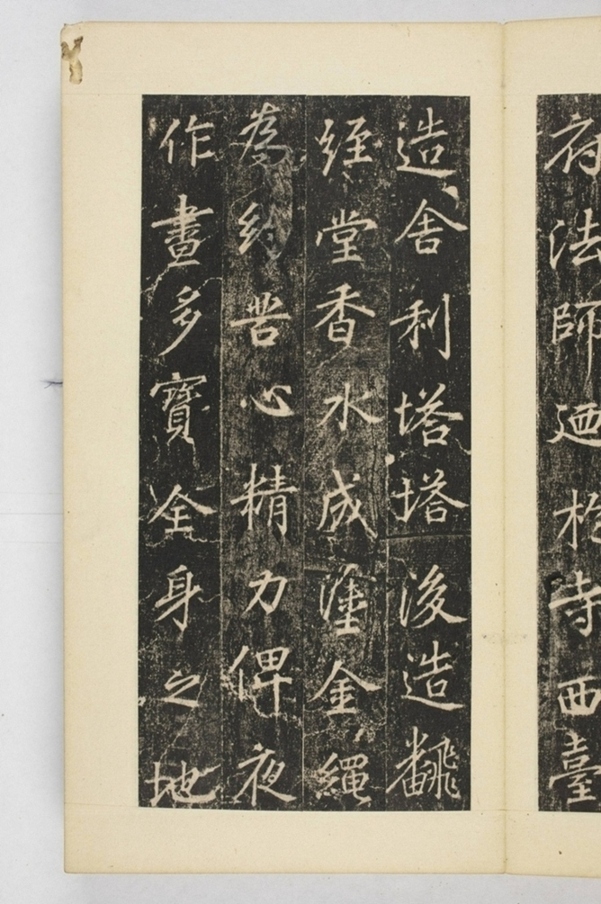 府法師廼於寺西臺
造舍利塔塔後造飜
經堂香水成塗金繩
為約苦心精力俾夜
作晝多寶全身之地